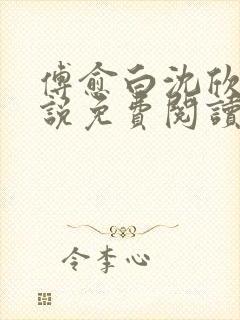 傅愈白沈欣
說免費閱讀
令李心